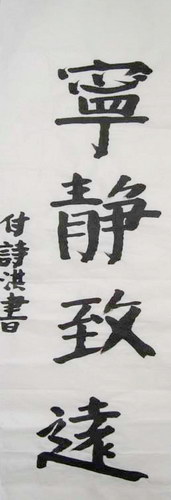 寧靜致遠
付詩淇書日